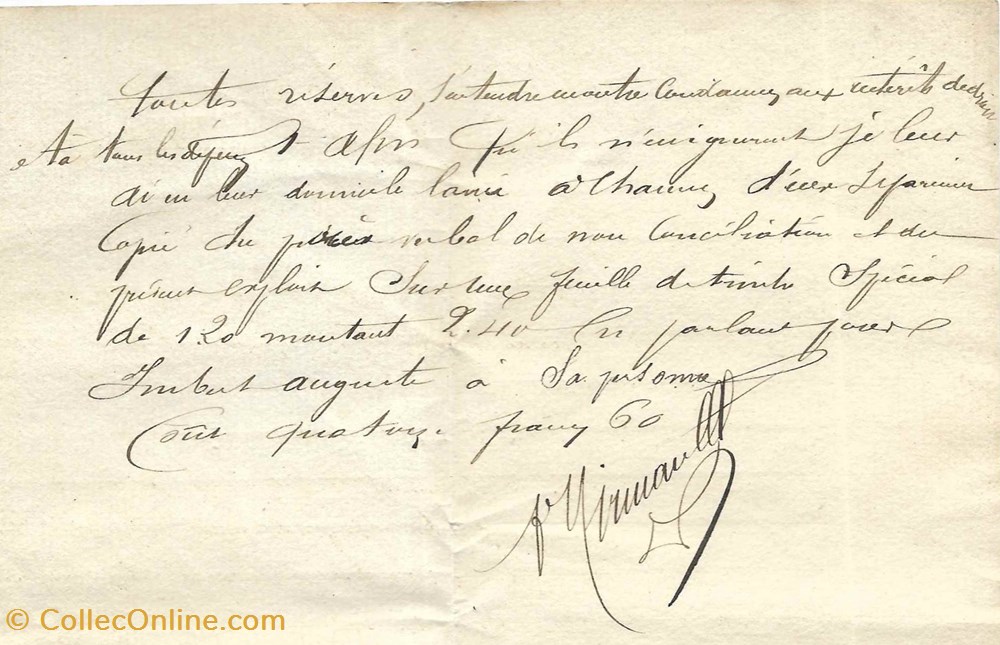 toutes réserves, s'entendre en outre condamner aux intérêts de droit
et à tous les dépens et afin qu'ils n'en ignorent je leur
ai en leur domicile laissé à chacun d'eux séparément
Copie du procès verbal de non Conciliation et du
présent exploit Sur une feuille de timbre Spécial
de 1.20 montant 2.40 En parlant pour
Imbert auguste à Sa personne
Coût quatorze francs 60
© CollecOnline.com